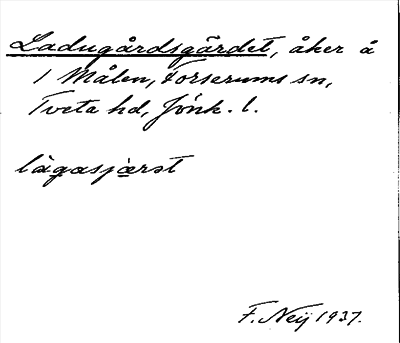 Ladugårdsgärdet, åker å
1 Målen, Forserums sn,
Tveta hd, Jönk. l.
lagasjærət
F. Neij 1937.